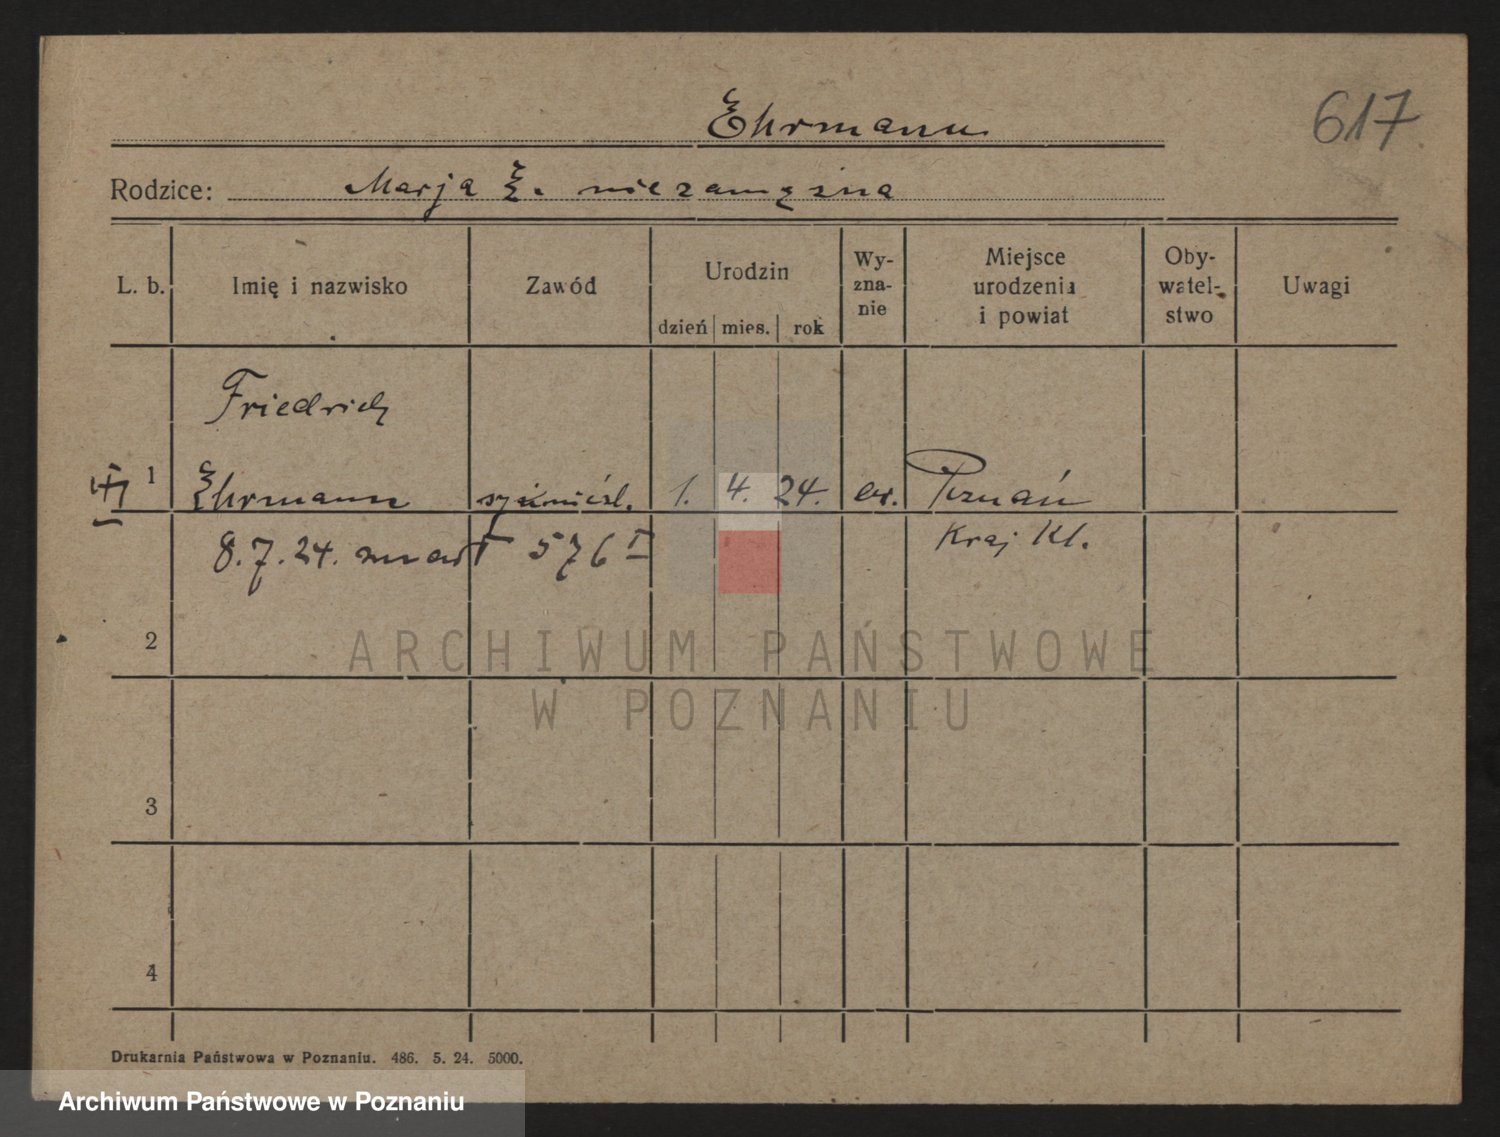 Ehrmann
617.
Rodzice: Marja E. niezamężna
L. b. Imię i nazwisko Zawód Urodzin dzień mies. rok Wy-zna-nie Miejsce urodzenia i powiat Oby-watel-stwo Uwagi
Friedrich
1 Ehrmann 1. 4. 24. ew. Poznań
8.7.24. zmarł 576 I Kraj Kl.
2
ARCHIWUM PAŃSTWOWE
W POZNANIU
3
4
Drukarnia Państwowa w Poznaniu. 486. 5. 24. 5000.
Archiwum Państwowe w Poznaniu